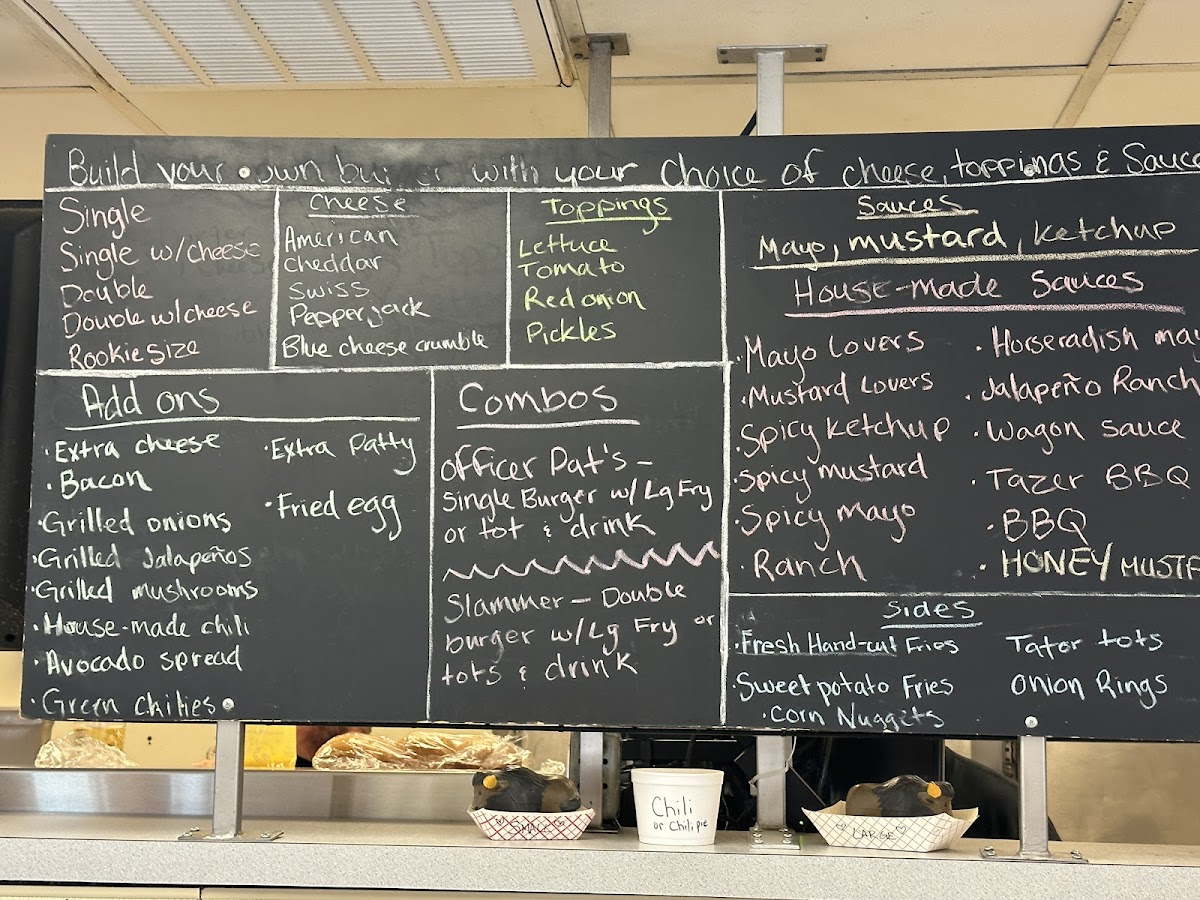 Build your own burger with your choice of cheese, toppings & Sauce
Single
Single w/cheese
Double
Double w/cheese
Rookie size
Cheese
American
cheddar
Swiss
Pepper jack
Blue cheese crumble
Toppings
Lettuce
Tomato
Red onion
Pickles
Sauces
Mayo, mustard, ketchup
House-made Sauces
·Mayo Lovers
·Mustard Lovers
·Spicy ketchup
·Spicy mustard
·Spicy mayo
·Ranch
·Horseradish may
·Jalapeño Ranch
·Wagon sauce
·Tazer BBQ
·BBQ
·HONEY MUSTA
Add ons
·Extra cheese
·Bacon
·Grilled onions
·Grilled Jalapeños
·Grilled mushrooms
·House-made chili
·Avocado spread
·Green chilies
·Extra Patty
·Fried egg
Combos
Officer Pat's -
Single Burger w/ Lg Fry
or tot & drink
Slammer - Double
burger w/Lg Fry or
tots & drink
Sides
·Fresh Hand-cut Fries
·Sweet potato Fries
·Corn Nuggets
Tater tots
Onion Rings
SMALL
Chili
or Chili pie
LARGE